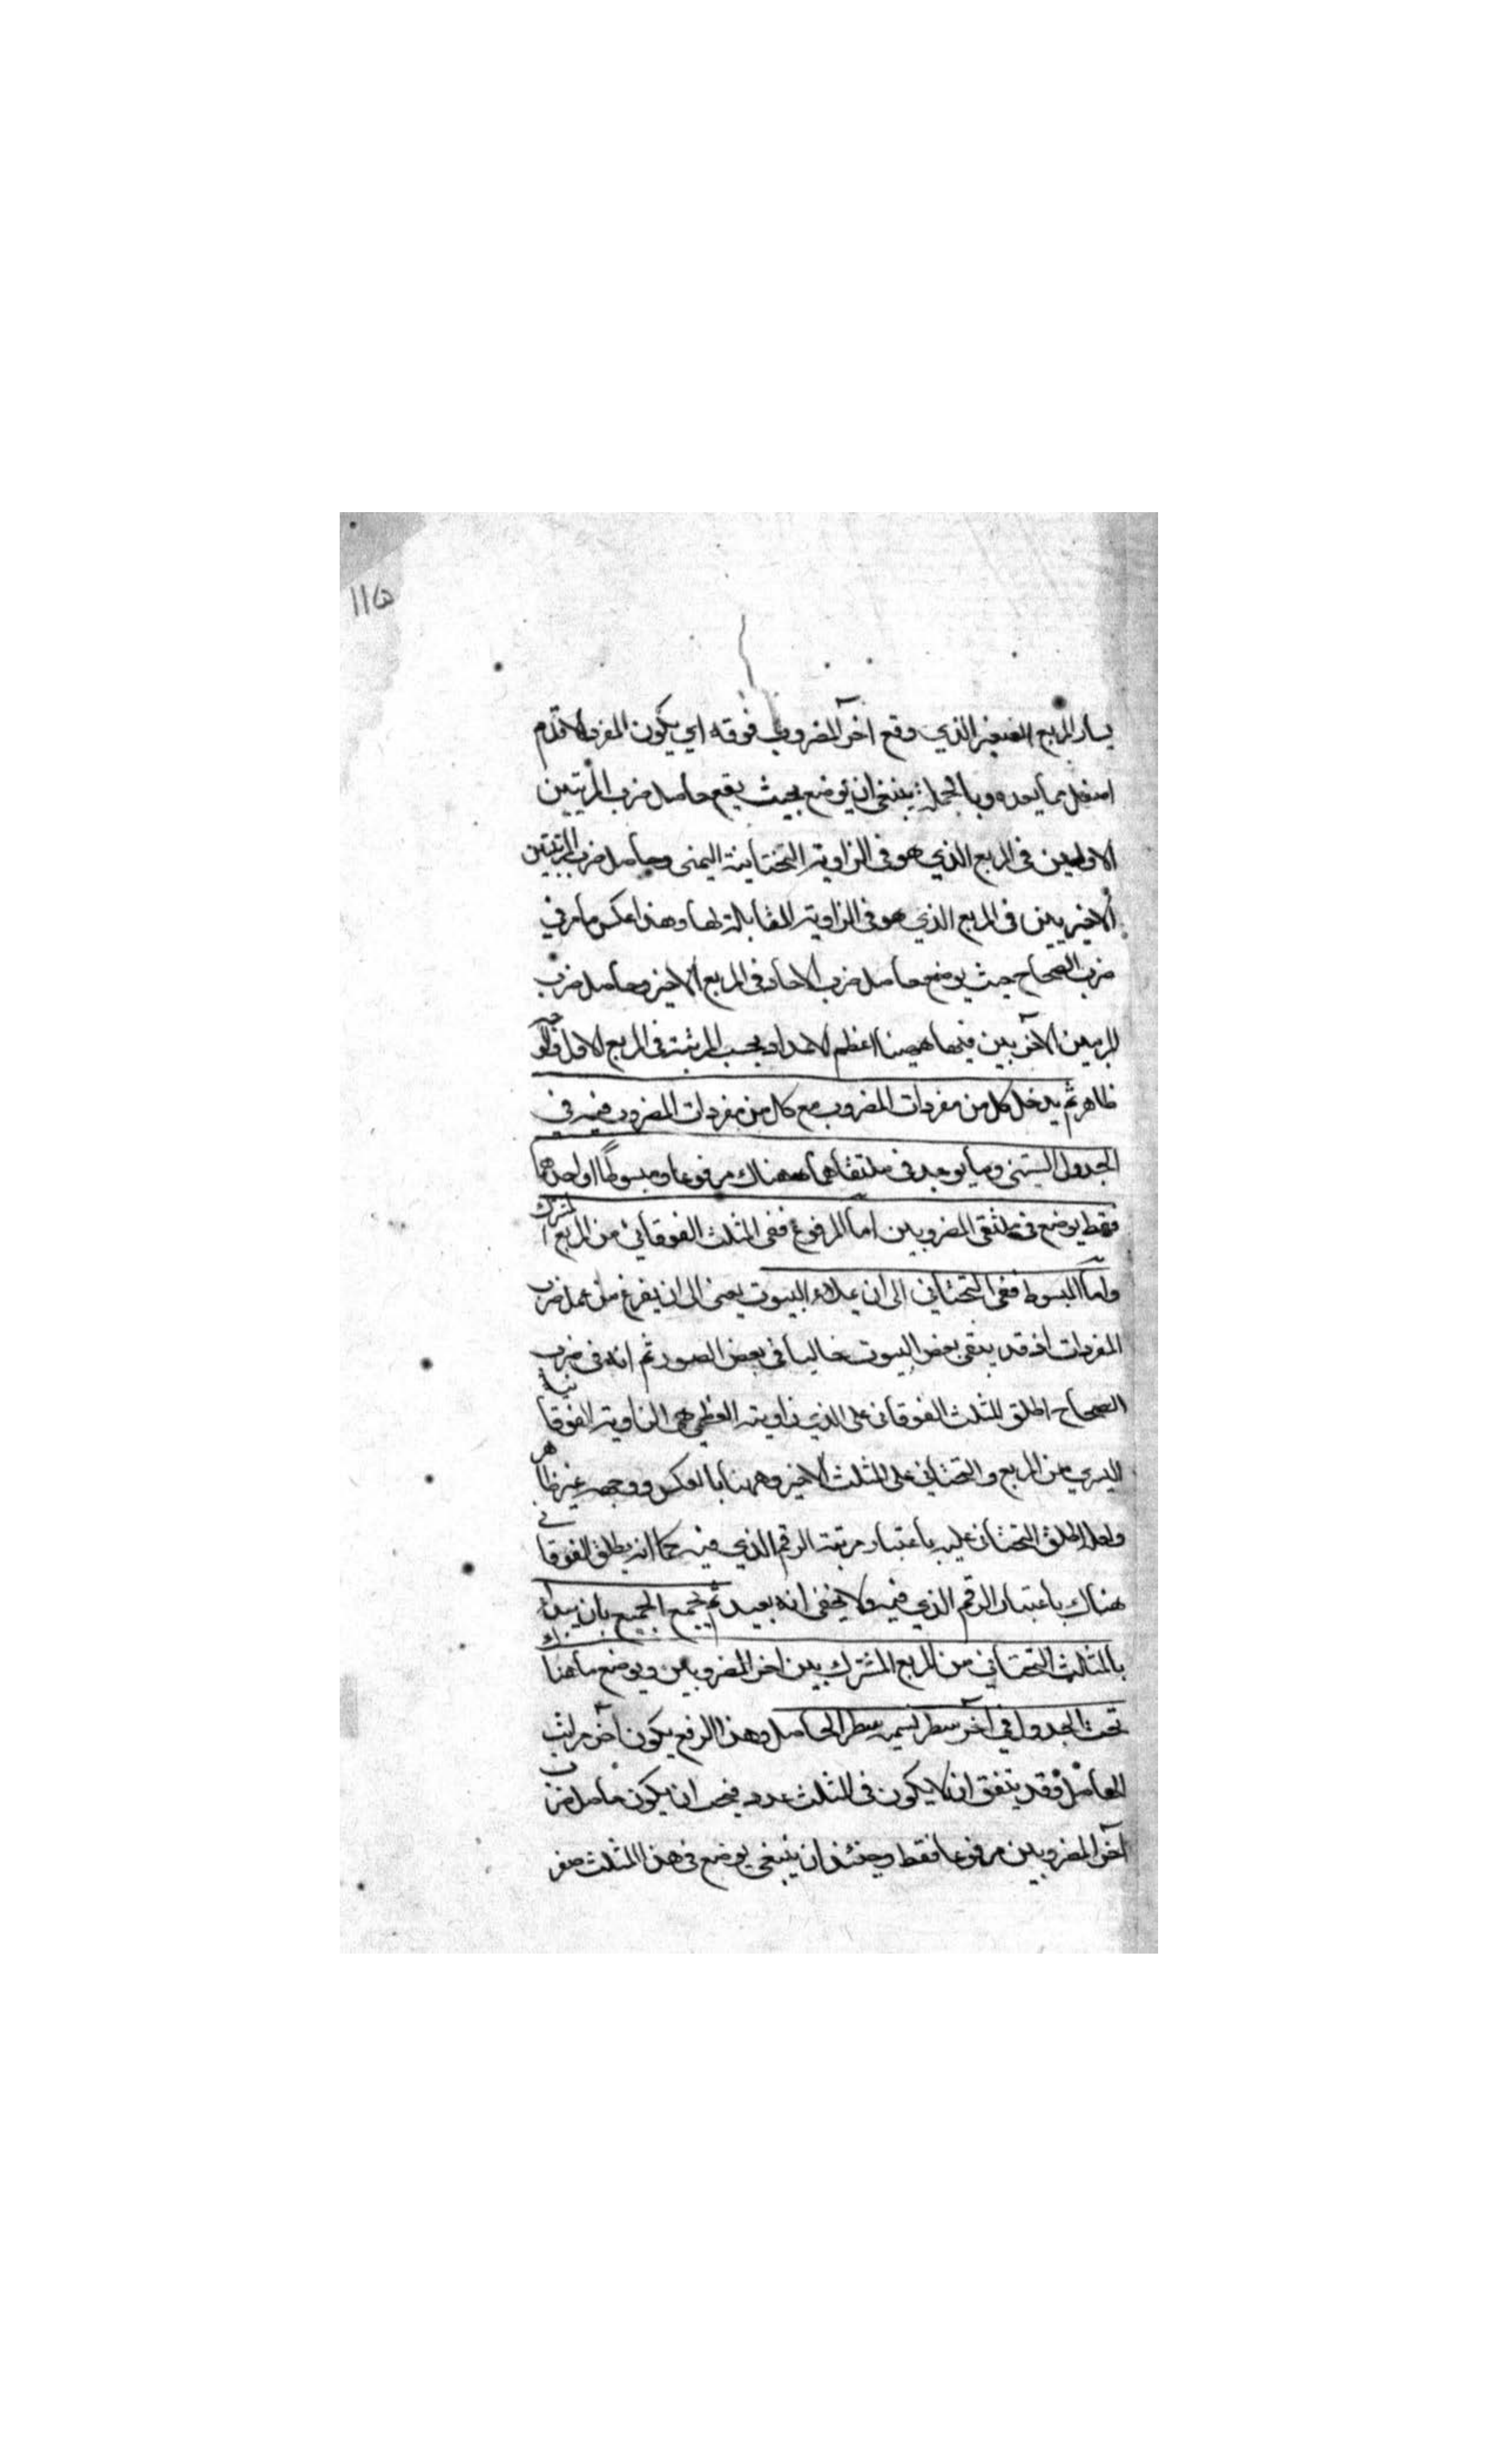 ١١٥
يسار المربع الصغير الذي وقع آخر المضروب فوقه اي يكون المفرد الاقدم
اسفل مما بعده وبالجملة ينبغي ان يوضع بحيث يقع حاصل ضرب المرتبتين
الاوليين في المربع الذي هو في الزاوية التحتانية اليمنى وحاصل ضرب المرتبتين
الاخيريين في المربع الذي هو في الزاوية المقابلة لها وهذا عكس ما مر في
ضرب الصحاح حيث يوضع حاصل ضرب الاحاد في المربع الاخير وحاصل ضرب
الاخريين فيها ههنا اعظم الاعداد بحسب المرتبة في المربع الاول
ظاهر ثم يدخل كل من مفردات المضروب مع كل من مفردات المضروب فيه في
الجدول الستيني وما يوجد في ملتقاهما هناك مرفوعا ومبسوطا او احدهما
فقط يوضع في ملتقى المضروبين اما المرفوع ففي المثلث الفوقاني من المربع المشترك
واما المبسوط ففي التحتاني الى ان يملاء البيوت يعني الى ان يفرغ من عمل ضرب
المفردات اذ قد يبقى بعض البيوت خاليا في بعض الصور ثم انه في ضرب
الصحاح اطلق المثلث الفوقاني على الذي زاويته العظمى هي الزاوية الفوقانية
اليسرى من المربع والتحتاني على المثلث الاخير وههنا بالعكس ووجهه غير ظاهر
ولعله اطلق التحتاني عليه باعتبار مرتبة الرقم الذي فيه كما انه يطلق الفوقاني
هناك باعتبار الرقم الذي فيه ولا يخفى انه بعيد ثم يجمع الجميع بان يبدأ
بالمثلث التحتاني من المربع المشترك بين آخر المضروبين ويوضع ما هناك
تحت الجدول في آخر سطر نسميه سطر الحاصل وهذا الرقم يكون آخر مراتب
الحاصل وقد يتفق ان لا يكون في المثلث عدد فيجب ان يكون حاصل ضرب
آخر المضروبين مرفوعا فقط وحينئذ ان ينبغي يوضع في هذا المثلث صفر